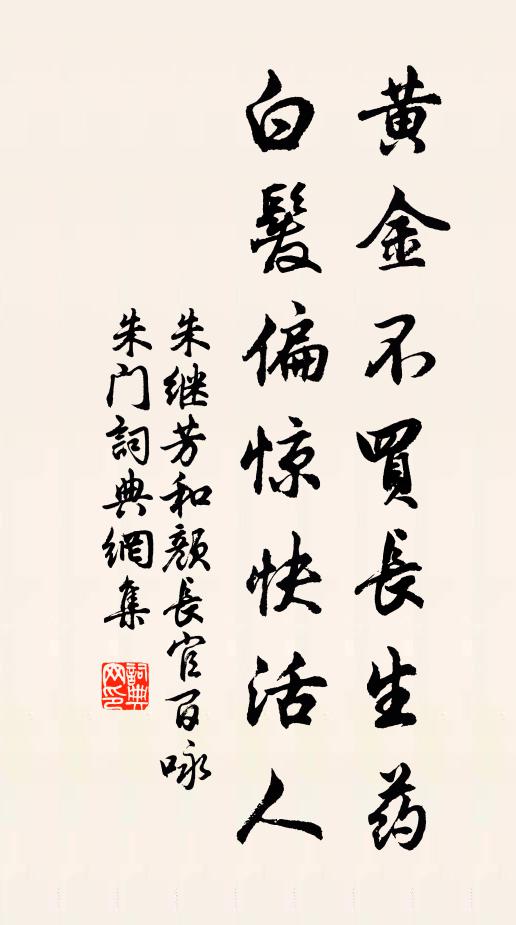 黄金不買長生药
白髮偏惊快活人
朱继芳和颜長官百咏
朱门詞典網集
詞典网印